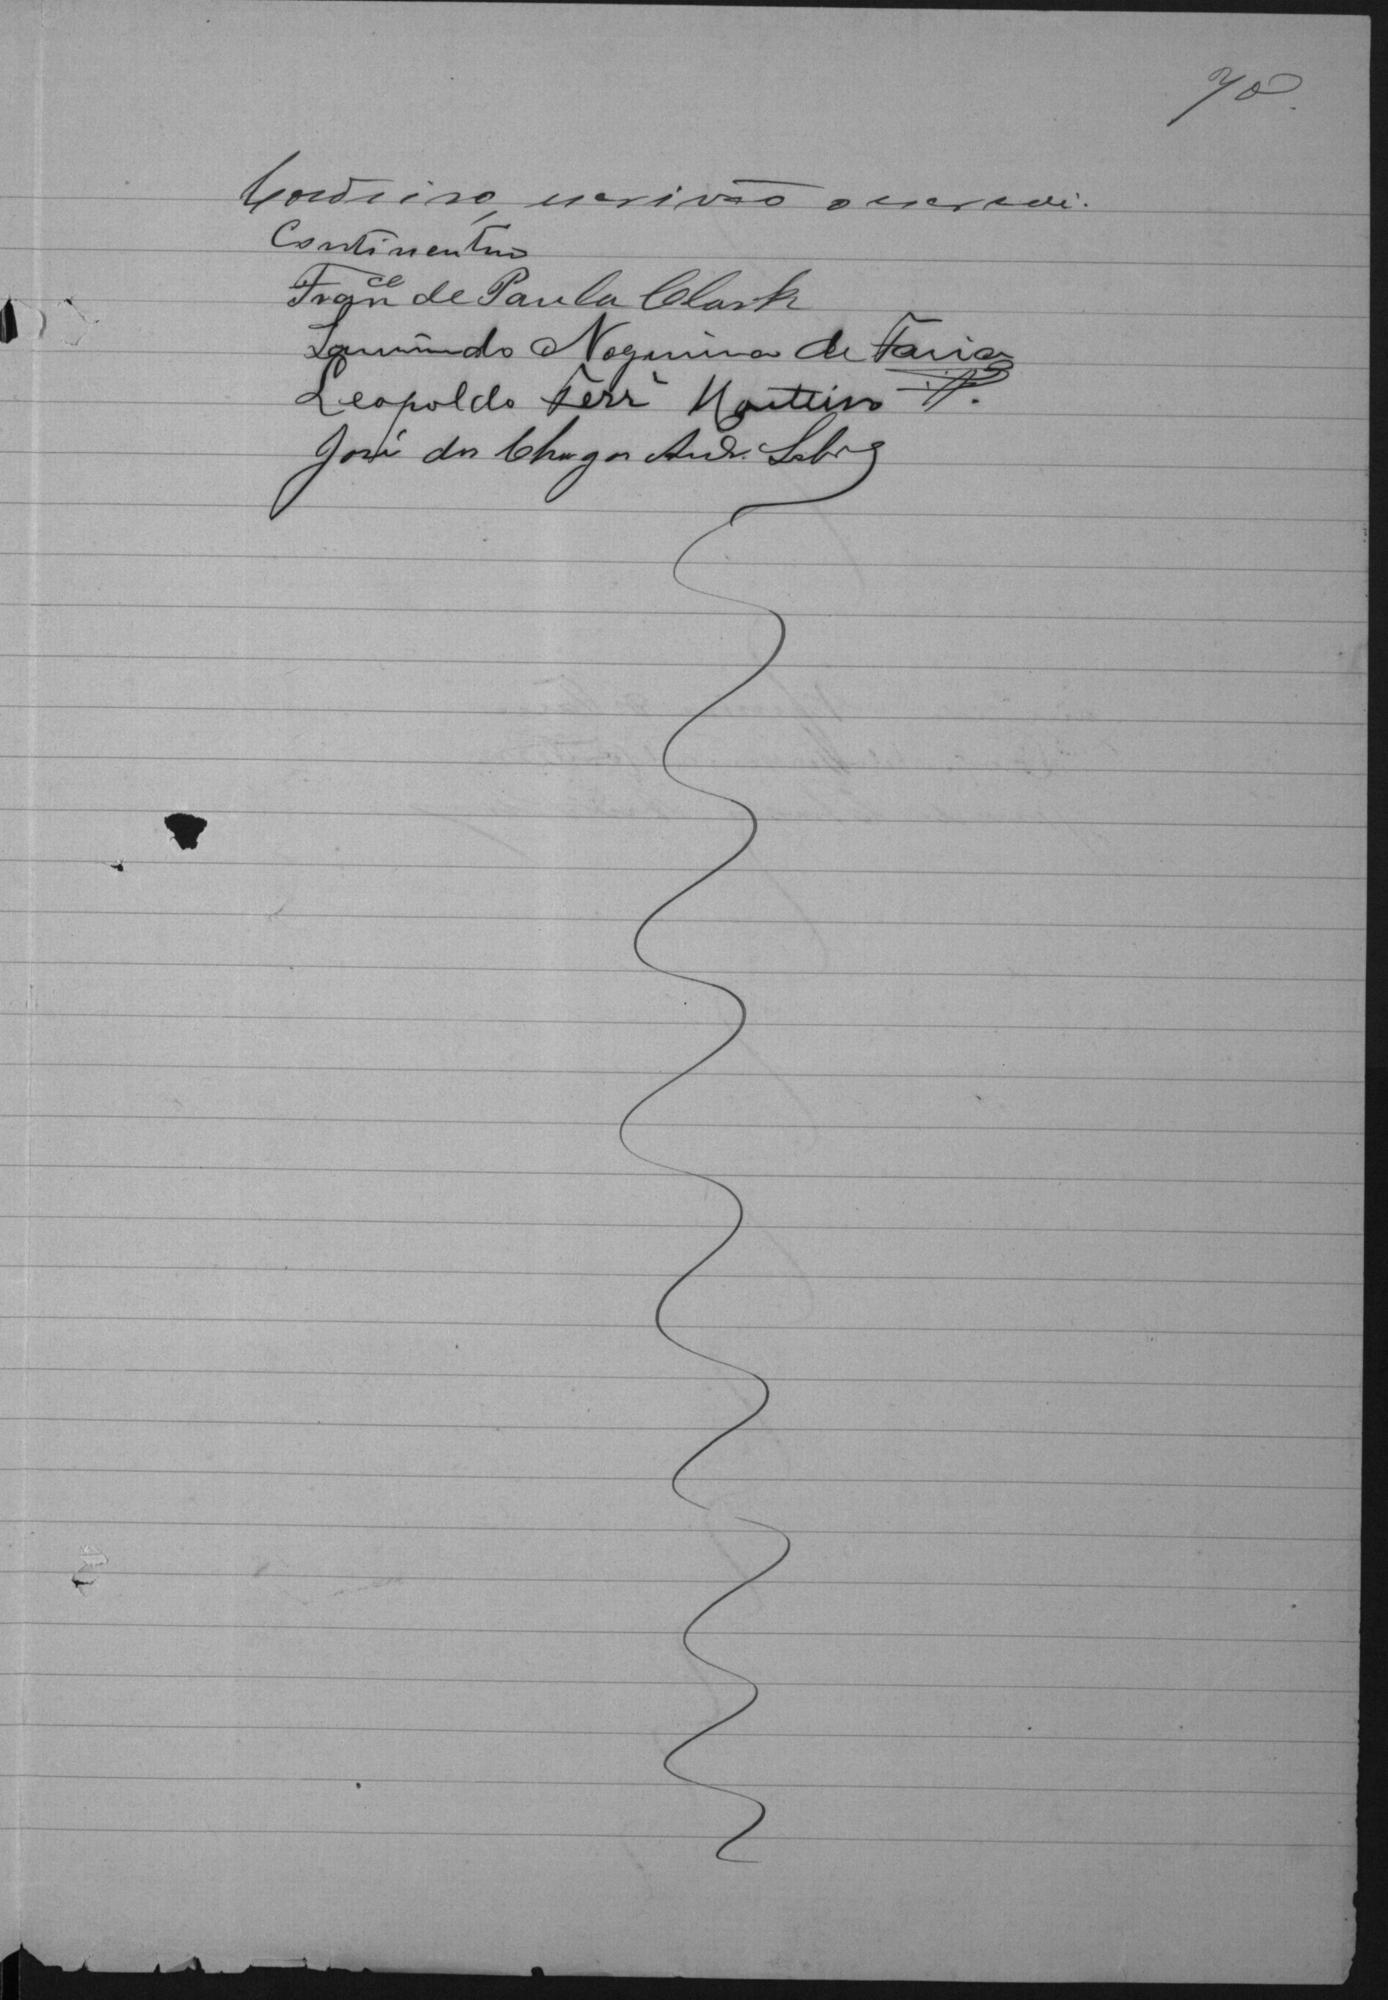 70.
Cordeiro, escrivão o escrevi.
Continentino
Franco de Paula Clark
Laurindo Nogueira de Faria
Leopoldo Ferra Monteiro
José das Chagas And. Sobro